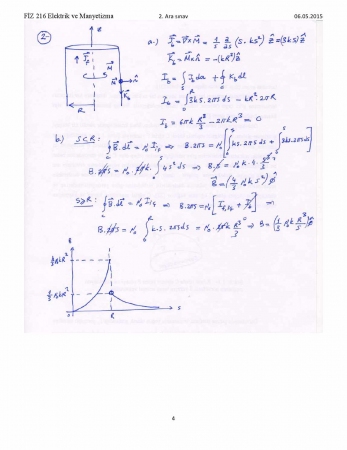 FİZ 216 Elektrik ve Manyetizma 2. Ara sınav 06.05.2015
2
a.) J⃗b = ∇⃗×M⃗ = 1/s ∂/∂s (s·ks²) ẑ = (3ks) ẑ
K⃗b = M⃗×n̂ = -(kR²) ẑ
Ib = ∫s Jb da + ∮ Kb dl
Ib = ∫0^R 3ks·2πs ds - kR²·2πR
Ib = 6πk R³/3 - 2πkR³ = 0
z
J⃗f
M⃗
n̂
K⃗b
R
b.) s<R: ∮ B⃗·dl⃗ = μ0 Iiç ⇒ B·2πs = μ0 [∫0^s ks·2πs ds + ∫0^s 3ks·2πs ds]
B·2πs = μ0·2πk·∫0^s 4s² ds ⇒ B·s = μ0 k·4·s³/3
B⃗ = (4/3 μ0 k s²) φ̂
s≥R: ∮ B⃗·dl⃗ = μ0 Iiç ⇒ B·2πs = μ0 [If,iç + Ib] ⇒
B·2πs = μ0 ∫0^R k·s·2πs ds = μ0·2πk R³/3 ⇒ B = (1/3 μ0 k R³/s) φ̂
B
4/3 μ0kR²
1/3 μ0kR²
0
R
s
4